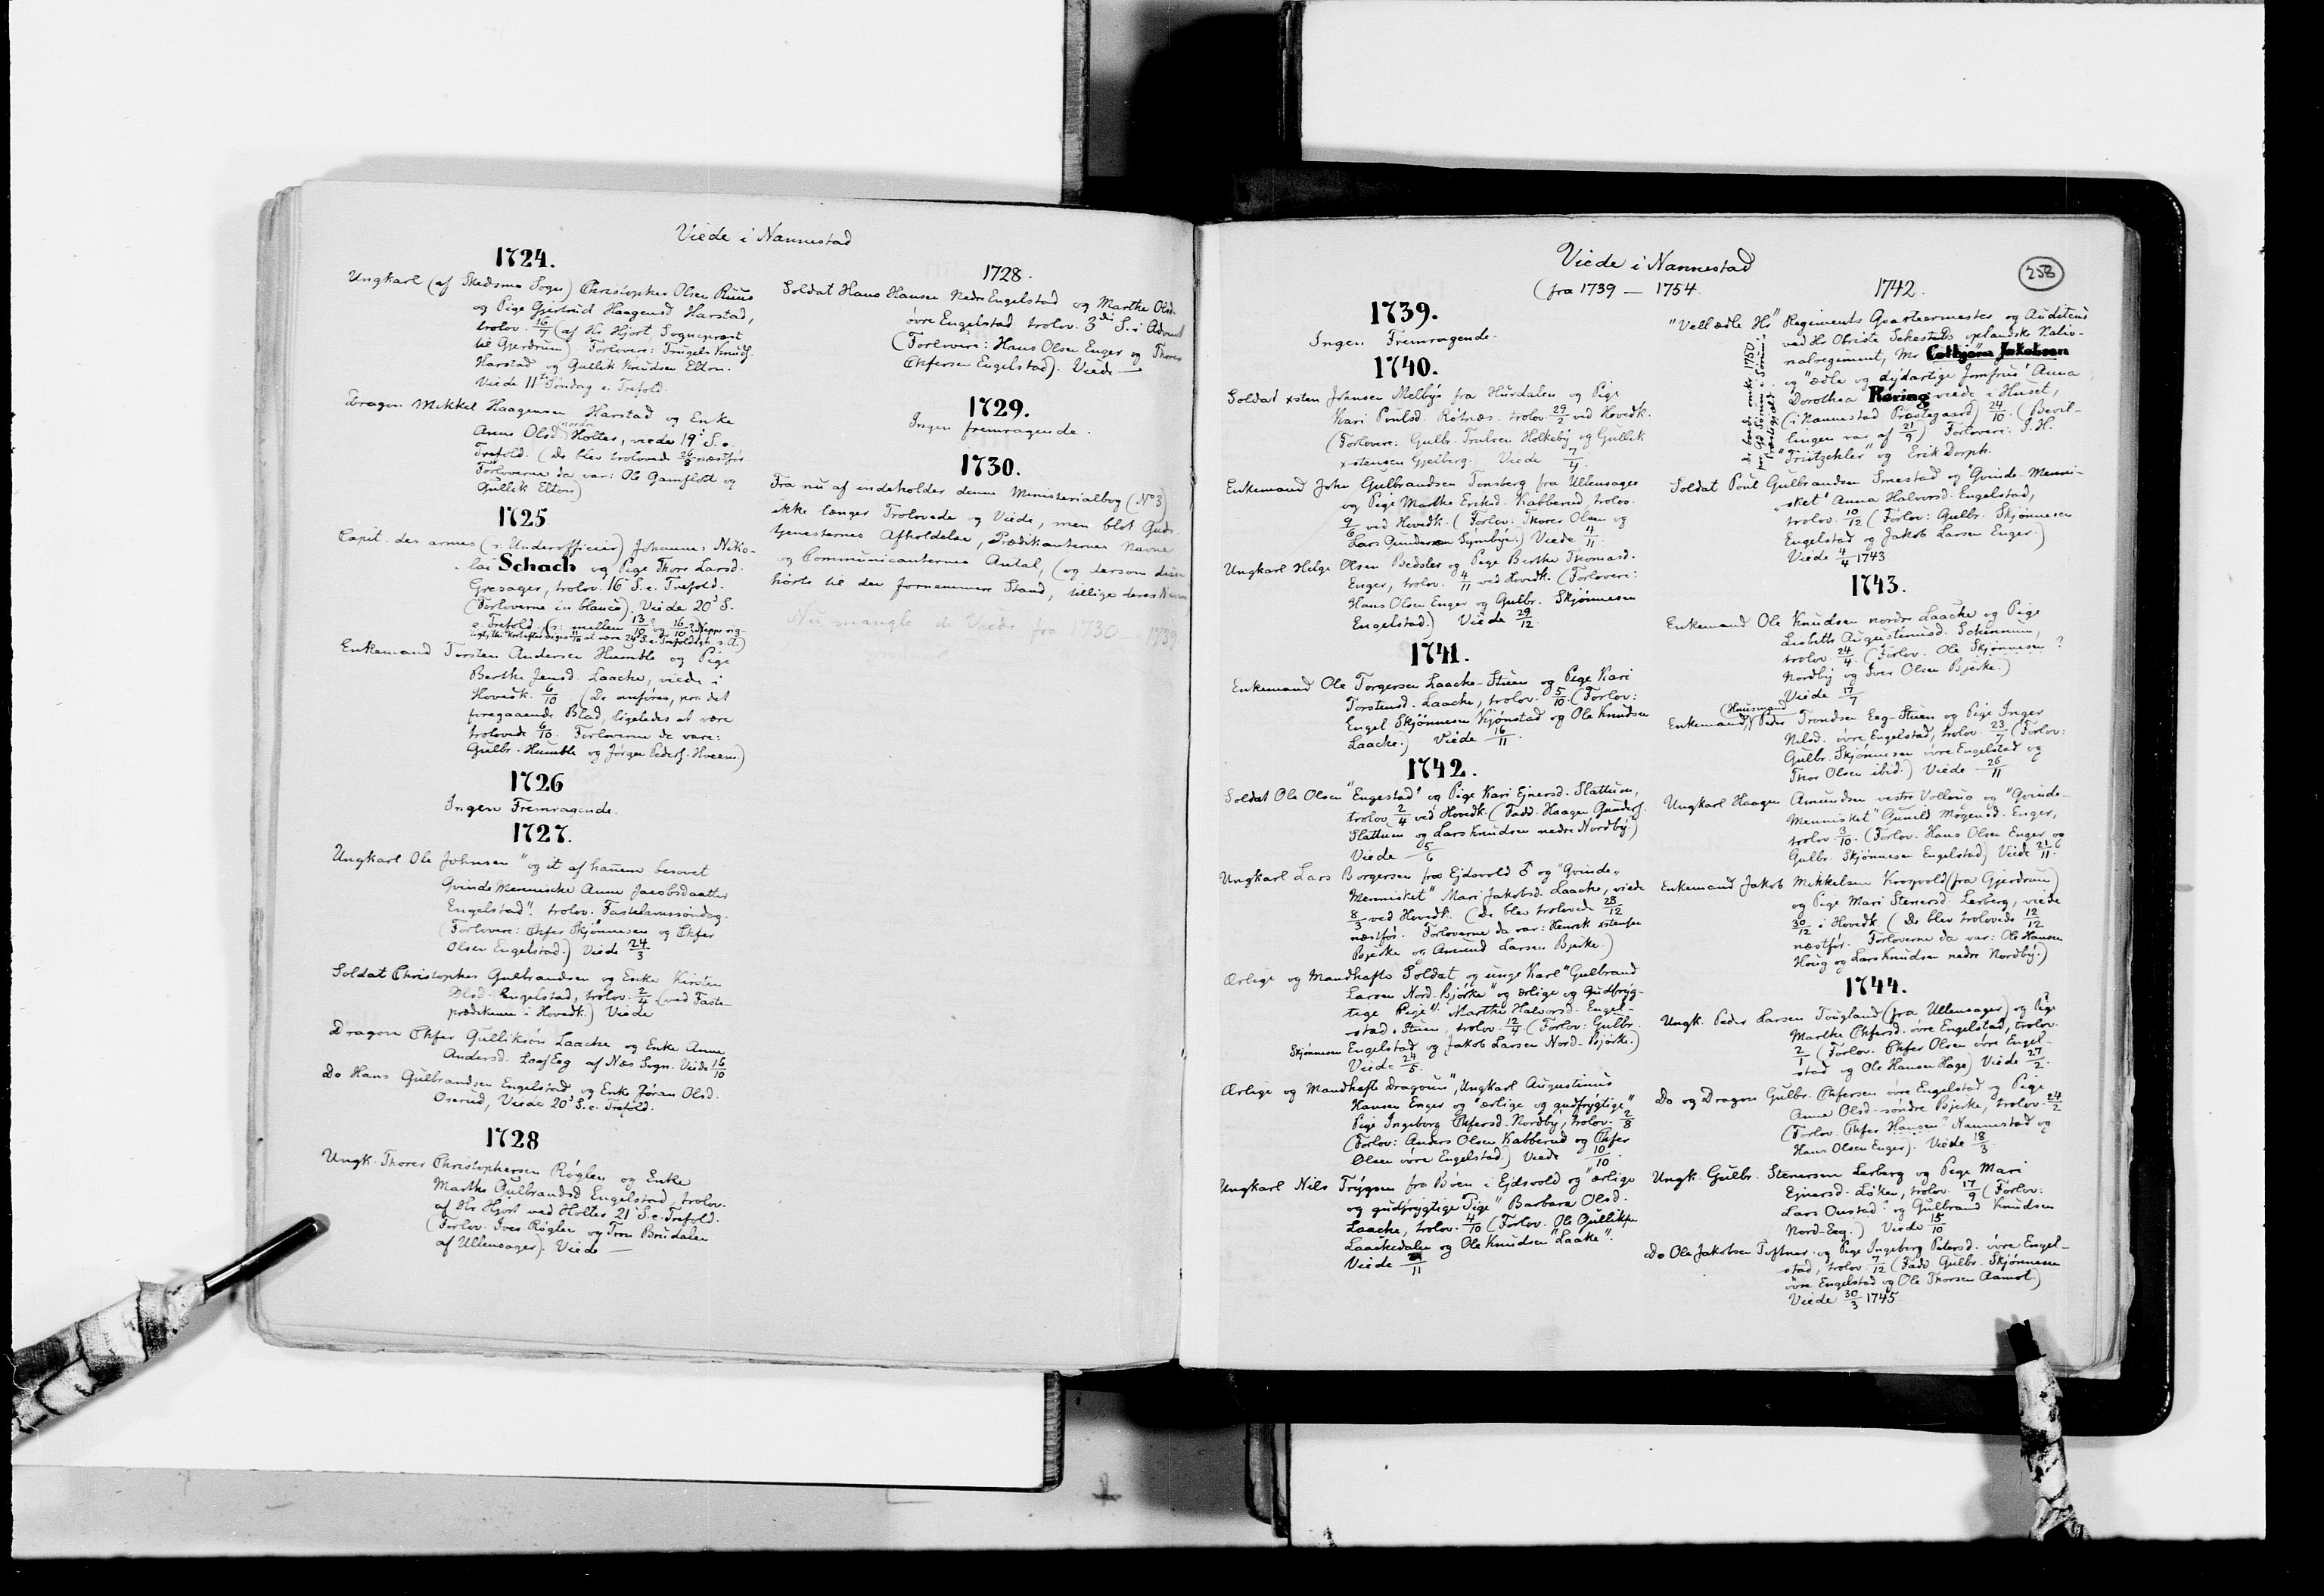 Viede i Nannestad
1724.
Ungkarl (af Skedsmo Sogn) Christopher Olsen Ruus
og Pige Gjertrud Haagensd Harstad,
trolov. 16/7 (af Hr Hjort, Sognepræst
til Gjerdrum) Forlovere: Trugels Knuds.
Harstad og Gullik Knudsen Elton.
Viede 11te Søndag e. Trefold.
Dragon Mikkel Haagensen Harstad og Enke
Anne Olsd. nordre Holter, viede 19' S. e.
Trefold. (De blev trolovede 26/8 næstfør.
Forloverne da var: Ole Gamflodt og
Gullik Elton)
1725
Capit. des armes (: Underofficier) Johannes Niko-
lai Schach og Pige Thore Larsd.
Gresager, trolov. 16' S. e. Trefold.
(Forloverne in blanco). Viede 20' S.
e. Trefold. (: mellem 13/10 og 16/10
Enkemand Torsten Andersen Humble og Pige
Berthe Jensd. Laache, viede i
Hovedk. 6/10 (De anføres, paa det
foregaaende Blad, ligeledes at være
trolovede 6/10. Forloverne da vare:
Gulbr. Humble og Jørgen Peders. Hveem.)
1726
Ingen Fremragende.
1727.
Ungkarl Ole Johnsen "og it af hannem besovet
Qvinde Menniske Anne Jacobsdaatter
Engelstad". trolov. Fastelavnssøndag.
(Forlovere: Chfer Skjønnesen og Chfer
Olsen Engelstad.) Viede 24/3
Soldat Christopher Gulbrandsen og Enke Kirsten
Olsd. Engelstad, trolov. 2/4 (ved Faste-
prædikenen i Hovedk.) Viede
Dragon Chfer Gulliksøn Laache og Enke Anne
Andersd. Eeg af Næs Sogn. Viede 16/10
Do Hans Gulbrandsen Engelstad og Enke Jøran Olsd.
Oserud, Viede 20' S. e. Trefold.
1728
Ungk. Thorer Christophersen Røglen og Enke
Marthe Gulbrandsd Engelstad, trolov.
af Hr Hjort ved Holter 21' S. e. Trefold.
(Forlov. Iver Røglen og Tron Brudalen
af Ullensager). Viede —
1728.
Soldat Hans Hansen Nedre Engelstad og Marthe Olsd.
øvre Engelstad trolov. 3die S. i Advent
(Forlovere: Hans Olsen Enger og Thorer
Chfersen Engelstad). Viede —
1729.
Ingen fremragende.
1730.
Fra nu af indeholder denne Ministerialbog (No 3)
ikke længer Trolovede og Viede, men blot Guds-
tjenesternes Afholdelse, Prædikanternes Navne
og Communicanternes Antal, (og dersom disse
hørte til den fornemmere Stand, tillige deres Navne
Nu mangle de Viede fra 1730 - 1739
Viede i Nannestad
(fra 1739 — 1754.
258
1739.
Ingen Fremragende.
1740.
Soldat xsten Johnsen Melbye fra Hurdalen og Pige
Kari Poulsd. Røtnæs. trolov. 29/2 ved Hovedk.
(Forlovere: Gulbr. Trulsen Holkeby og Gullik
xstensen Gjelberg.) Viede 7/4.
Enkemand John Gulbrandsen Tonsberg fra Ullensager
og Pige Marthe Eriksd. Kabberud trolov.
9/6 ved Hovedk. (Forlov: Thorer Olsen og
Lars Gundersen Sÿmbÿe.) Viede 4/11
Ungkarl Helge Olsen Bedsler og Pige Berthe Thomasd.
Enger, trolov. 4/11 ved Hovedk. (Forlovere:
Hans Olsen Enger og Gulbr. Skjønnesen
Engelstad.) Viede 29/12.
1741.
Enkemand Ole Torgersen Laache-Stuen og Pige Kari
Torstensd. Laache, trolov. 5/10. (Forlov:
Engel Skjønnesen Kjønstad og Ole Knudsen
Laache.) Viede 16/11.
1742.
Soldat Ole Olsen "Engestad" og Pige Kari Ejnersd. Slattum,
trolov. 2/4 ved Hovedk. (Fadd. Haagen Gunders.
Slattum og Lars Knudsen nedre Nordbÿ.)
Viede 5/6
Ungkarl Lars Borgersen fra Ejdsvold ♂ og "Qvinde-
Mennisket" Mari Jakobsd. Laache, viede
8/3 ved Hovedk. (De blev trolovede 28/12
næstfør. Forloverne da var: Henrik xstensen
Bjerke og Amund Larsen Bjerke.)
Ærlige og Mandhafte Soldat og unge Karl "Gulbrand
Larsen Nord-Bjørke" og ærlige og Gudfrÿg-
tige Pige" Marthe Halvorsd. Engel-
stad-Stuen, trolov. 12/4 (Forlov: Gulbr.
Skjønnesen Engelstad og Jakob Larsen Nord-Bjørke.)
Viede 24/5.
Ærlige og Mandhafte Dragoun", Ungkarl Augustinus
Hansen Enger og "ærlige og gudfrÿgtige"
Pige Ingeborg Chfersd. Nordbÿ, trolov. 2/8
(Forlov: Anders Olsen Kabberud og Chfer
Olsen øvre Engelstad.) Viede 10/10.
Ungkarl Nils Trÿgsen fra Bøen i Ejdsvold og "ærlige
og gudfrÿgtige Pige" Barbara Olsd.
Laache, trolov. 4/10 (Forlov. Ole Gulliksen
Laachedalen og Ole Knudsen "Laake".
Viede /11
1742.
"Vellædle Hr" Regiments Qvarteermester og Auditeur
ved Hr Obriste Sehesteds oplandske Natio-
nalregiment, Mr Cathjøren Jakobsen
og "ædle og dÿdartige Jomfrue" Anna
Dorothea Røring viede i Huset,
(i Nannestad Prestegaard) 24/10. (Bevil-
lingen var af 21/9) Forlovere: J. H.
"Triitzchler" og Erik Dorph.
Soldat Poul Gulbrandsen Smestad og "Qvinde-Menni-
sket" Anna Halvorsd. Engelstad,
trolov. 10/12 (Forlov: Gulbr. Skjønnesen
Engelstad og Jakob Larsen Enger.)
Viede 4/4 1743
1743.
Enkemand Ole Knudsen nordre Laache og Pige
Lisbeth Augustinusd. Schinnum,
trolov. 24/4. (Forlov. Ole Skjønnesen ?
Nordbÿ og Iver Olsen Bjerke.)
Viede 17/7
(Huusmand
Enkemand, Peder Trondsen Eeg-Stuen og Pige Inger
Nilsd. øvre Engelstad, trolov. 23/7 (Forlov:
Gulbr. Skjønnesen øvre Engelstad og
Thor Olsen ibid.) Viede 26/11
Ungkarl Haagen Amundsen vestre Vollaug og "Qvinde-
Mennisket" Gunild Mogensd. Enger,
trolov. 3/10. (Forlov. Hans Olsen Enger og
Gulbr. Skjønnesen Engelstad) Viede 21/11.
Enkemand Jakob Mikkelsen Krogvold (fra Gjerdrum)
og Pige Mari Stenersd. Lerberg, viede
30/12 i Hovedk. (De blev trolovede 12/12
næstfør. Forloverne da var: Ole Hansen
Houg og Lars Knudsen nedre Nordbÿ.)
1744.
Ungk. Peder Larsen Tougland (fra Ullensager) og Pige
Marthe Chfersd. øvre Engelstad, trolov.
2/1 (Forlov. Chfer Olsen øvre Engel-
stad og Ole Hansen Hage) Viede 27/2.
Do og Dragon Gulbr. Chfersen øvre Engelstad og Pige
Anne Olsd. søndre Bjerke, trolov. 24/2
(Forlov. Chfer Hansen" Nannestad og
Hans Olsen Enger). Viede 18/3.
Ungk. Gulbr. Stenersen Lerberg og Pige Mari
Ejnersd. Løken, trolov. 17/9 (Forlov:
Lars Onstad? og Gulbrand Knudsen
Nord-Eeg.) Viede 15/10
Do Ole Jakobsen Tuftner og Pige Ingeborg Petersd. øvre Engel-
stad, trolov. 7/12 (Fadd. Gulbr. Skjønnesen
øvre Engelstad og Ole Thorsen Aamot.)
Viede 30/3 1745